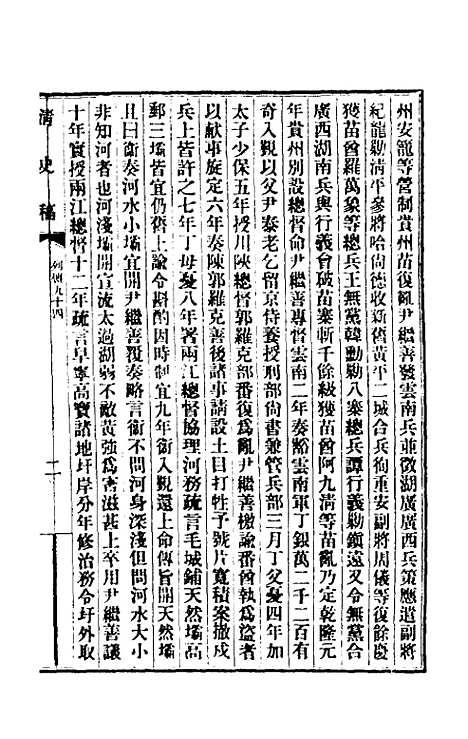 州安籠等營制貴州苗復亂尹繼善發雲南兵並徵湖廣廣西兵策應遣副將
紀龍勦淸平參將哈尙德收新舊黃平二城合兵徇重安副將周儀等復餘慶
獲苗酋羅萬象等總兵王無黨韓勳勦八寨總兵譚行義勦鎭遠又令無黨合
廣西湖南兵與行義會破苗寨斬千餘級獲苗酋阿九淸等苗亂乃定乾隆元
年貴州別設總督命尹繼善專督雲南二年奏豁雲南軍丁銀萬二千二百有
奇入覲以父尹泰老乞留京侍養授刑部尙書兼管兵部三月丁父憂四年加
太子少保五年授川陝總督郭羅克部番復爲亂尹繼善檄諭番酋執爲盜者
以獻事旋定六年奏陳郭羅克善後諸事請設土目打牲予號片寬積案撤戍
兵上皆許之七年丁母憂八年署兩江總督協理河務疏言毛城鋪天然壩高
郵三壩皆宜仍舊上諭令斟酌因時制宜九年銜入覲還上命傳旨開天然壩
且曰銜奏河水小壩宜開尹繼善覆奏略言銜不問河身深淺但問河水大小
非知河者也河淺壩開宣流太過湖弱不敵黃強爲害滋甚上卒用尹繼善議
十年實授兩江總督十二年疏言阜寧高寶諸地圩岸分年修治務令圩外取
淸史稿
列傳九十四
二